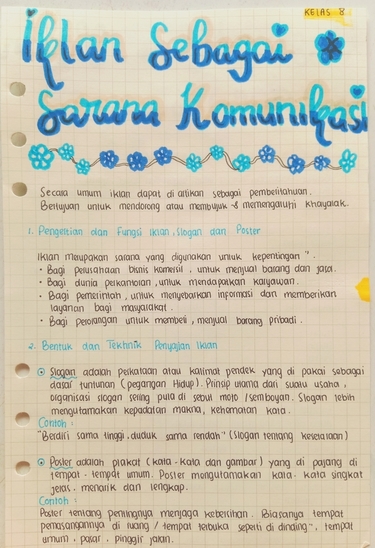 KELAS 8
Iklan Sebagai
Sarana Komunikasi
Secara umum iklan dapat di artikan sebagai pemberitahuan.
Bertujuan untuk mendorong atau membujuk & memengaruhi khayalak.
1. Pengertian dan Fungsi Iklan, Slogan dan Poster
Iklan merupakan sarana yang digunakan untuk kepentingan".
• Bagi perusahaan bisnis komersil, untuk menjual barang dan jasa.
• Bagi dunia perkantoran, untuk mendapatkan karyawan.
• Bagi pemerintah, untuk menyebarkan informasi dan memberikan
layanan bagi masyarakat.
• Bagi perorangan untuk membeli, menjual barang pribadi.
2. Bentuk dan Tekhnik Penyajian Iklan
Slogan adalah perkataan atau kalimat pendek yang di pakai sebagai
dasar tuntunan (pegangan Hidup). Prinsip utama dari suatu usaha,
organisasi slogan sering pula di sebut moto / semboyan. Slogan lebih
mengutamakan kepadatan makna, kehematan kata.
Contoh :
"Berdiri sama tinggi, duduk sama rendah" (Slogan tentang kesetaraan)
Poster adalah plakat (kata-kata dan gambar) yang di pajang di
tempat-tempat umum. Poster mengutamakan kata-kata singkat
jelas, menarik dan lengkap.
Contoh :
Poster tentang pentingnya menjaga kebersihan. Biasanya tempat
pemasangannya di ruang / tempat terbuka seperti di dinding", tempat
umum, pasar, pinggir jalan.